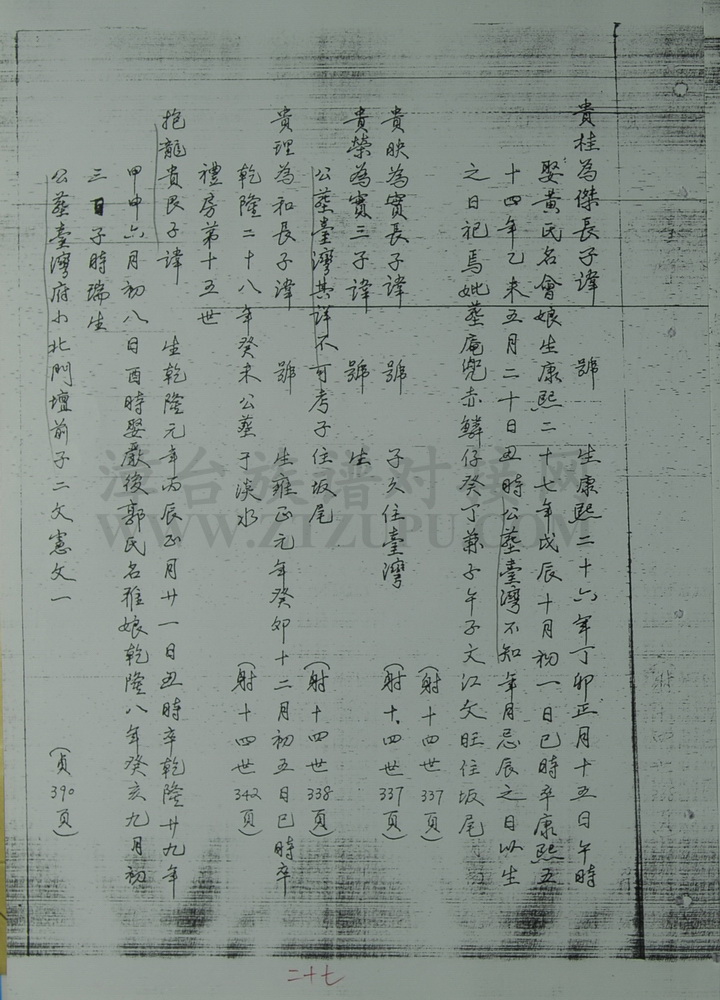 貴桂為傑長子諱 號 生康熙二十六年丁卯正月十五日午時
娶黃氏名會娘生康熙二十七年戊辰十月初一日巳時卒康熙五
十四年乙未五月二十日丑時公葬臺灣不知年月忌辰之日以生
之日祀焉妣葬庵兜赤鱗仔癸丁兼子午子文江文旺住坂尾
(射十四世337頁)
貴映為實長子諱 號 子久住臺灣
(射十四世337頁)
貴榮為實三子諱 號 生
公葬臺灣其詳不可考子住坂尾
(射十四世338頁)
貴理為和長子諱 號 生雍正元年癸卯十二月初五日巳時卒
乾隆二十八年癸未公葬于淡水
(射十四世342頁)
禮房第十五世
抱龍貴艮子諱 生乾隆元年丙辰正月廿一日丑時卒乾隆廿九年
甲申六月初八日酉時娶嚴後郭氏名雅娘乾隆八年癸亥九月初
三日子時瑞生
公葬臺灣府小北門壇前子二文憲文一
(貞390頁)
二十七
江台族谱对接网
WWW.ZTZUPU.COM